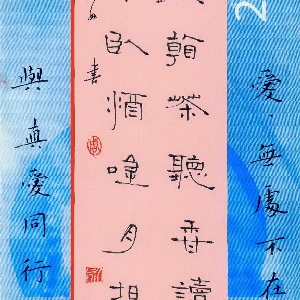 愛,無處不在
翰茶聽香讀
臥酒唯月招
書
與真愛同行
2